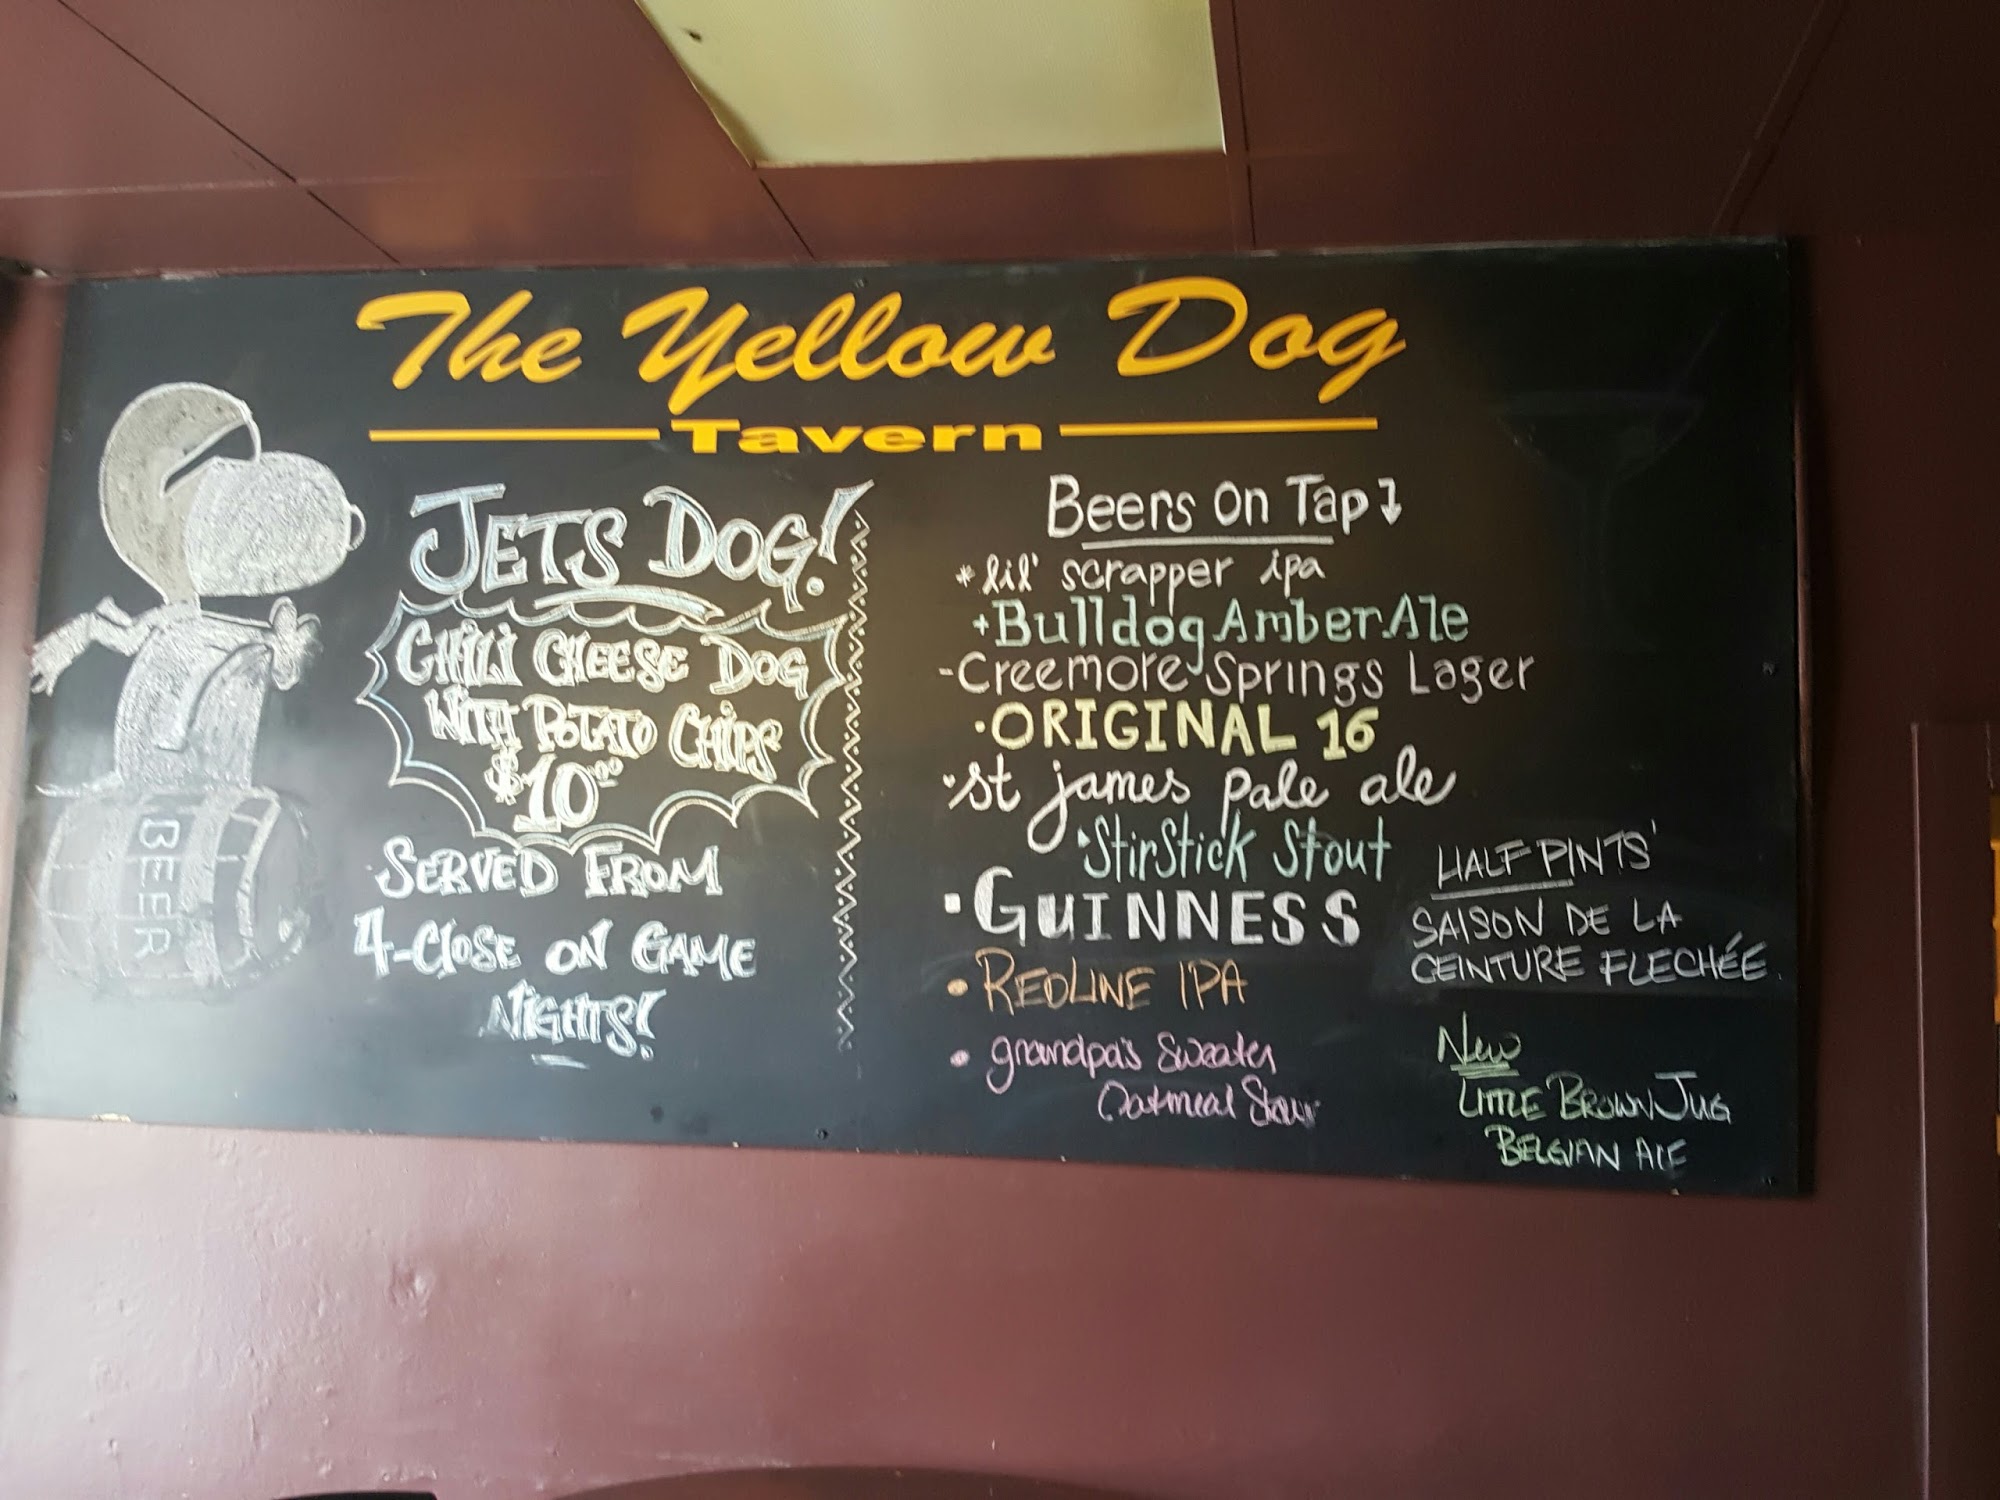 The Yellow Dog
Tavern
JETS DOG!
CHILI CHEESE DOG
WITH POTATO CHIPS
$10.00
SERVED FROM
4-CLOSE ON GAME
NIGHTS!
BEER
Beers On Tap
*lil' scrapper ipa
+Bulldog Amber Ale
-Creemore Springs Lager
·ORIGINAL 16
·st james pale ale
·StirStick Stout
·GUINNESS
·REDLINE IPA
·grandpa's Sweater
Oatmeal Stout
HALF PINTS'
SAISON DE LA
CEINTURE FLECHÉE
New
LITTLE BROWN JUG
BELGIAN ALE